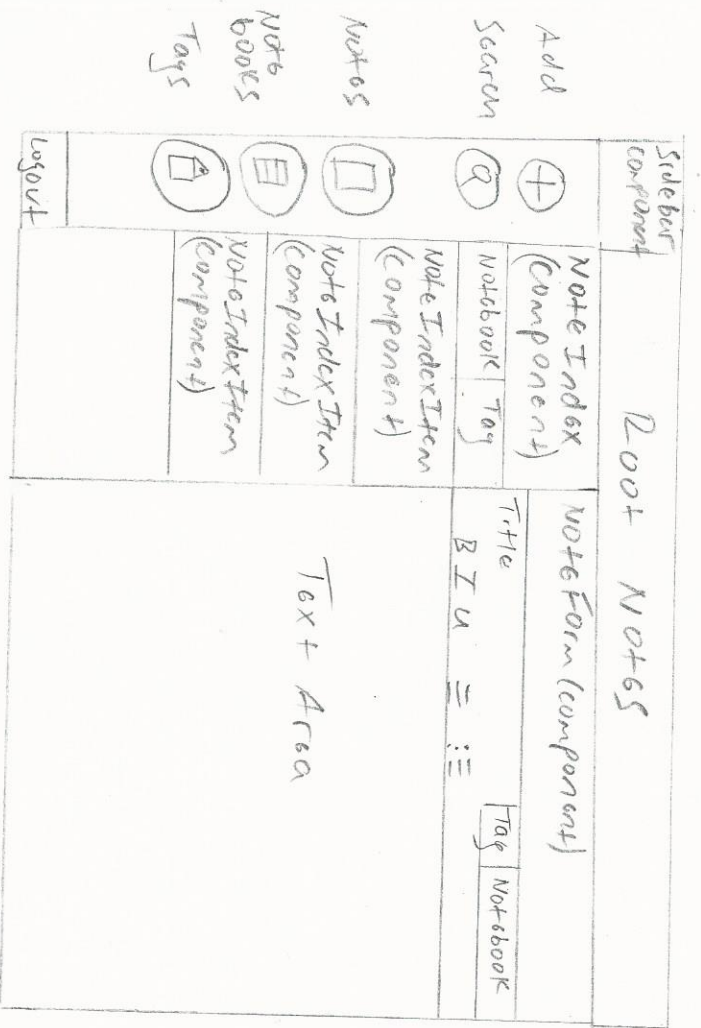 Root Notes
Sidebar
component
Add
Search
Notes
Note
books
Tags
Logout
Note Index
(component)
Notebook | Tag
NoteIndexItem
(component)
NoteIndexItem
(component)
NoteIndexItem
(component)
NoteForm (component)
Title
Tag | Notebook
B I u
Text Area